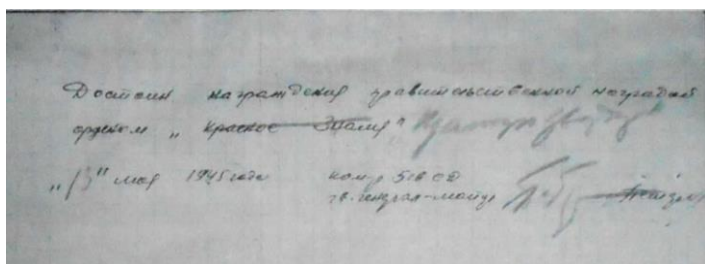 Достоин награждения правительственной наградой
орденом „Красное Знамя"
„13" мая 1945 года ком-р 518 СД
гв. генерал-майор